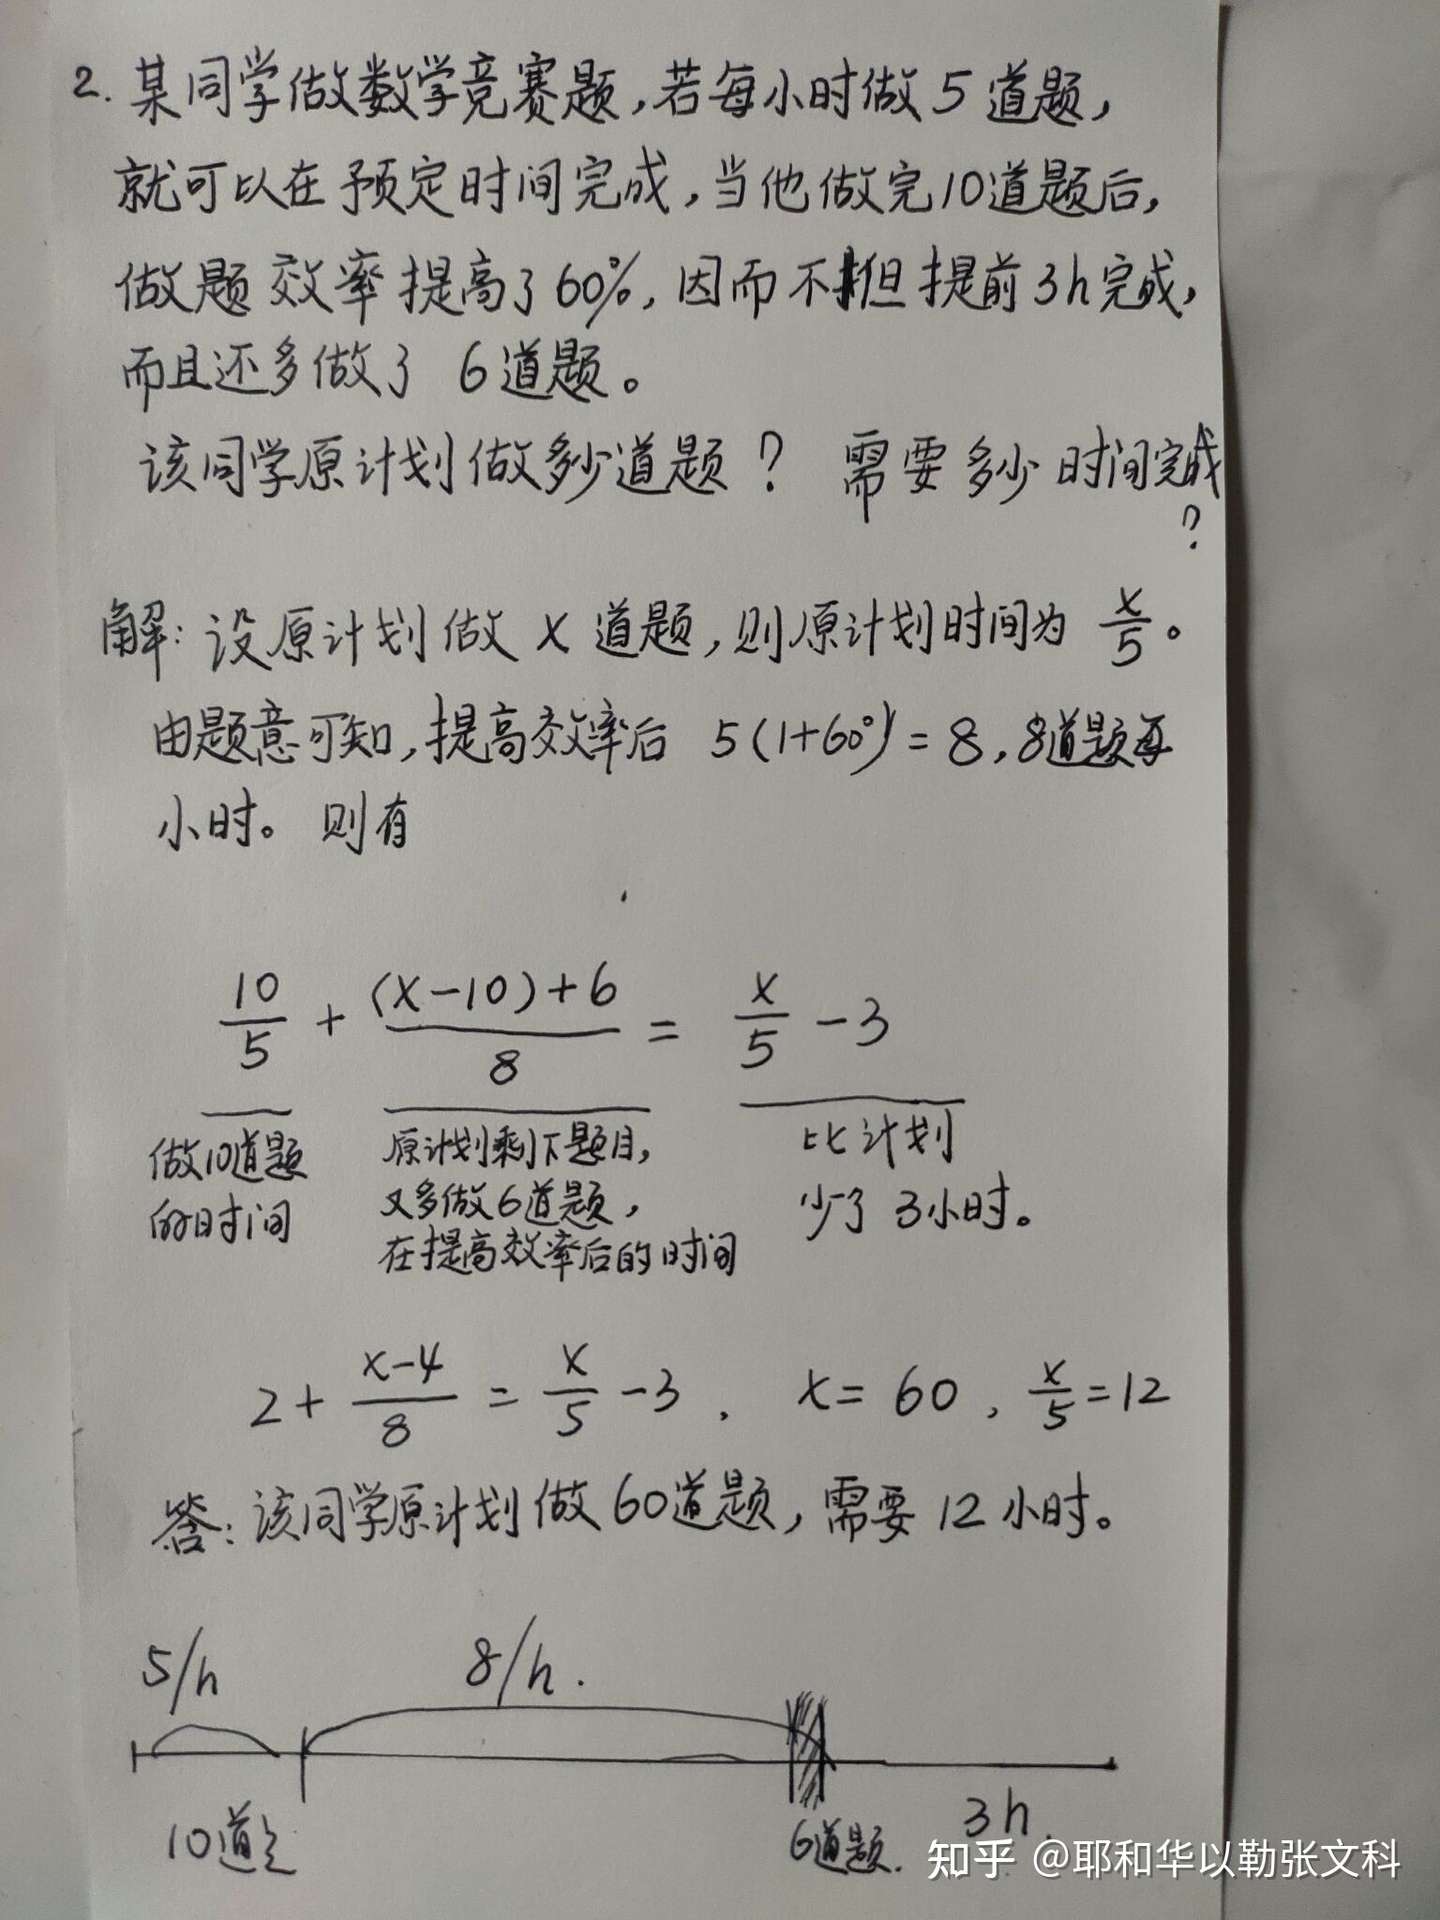 2. 某同学做数学竞赛题,若每小时做 5 道题,
就可以在预定时间完成,当他做完10道题后,
做题效率提高了60%,因而不但提前3h完成,
而且还多做了 6道题。
该同学原计划做多少道题? 需要多少时间完成
?
解:设原计划做 x 道题,则原计划时间为 x/5。
由题意可知,提高效率后 5(1+60%)=8,8道题每
小时。则有
10/5 + (x-10)+6/8 = x/5 -3
做10道题 原计划剩下题目, 比计划
的时间 又多做6道题, 少了3小时。
在提高效率后的时间
2+ x-4/8 = x/5 -3 , x=60 , x/5 =12
答:该同学原计划做60道题,需要12小时。
5/h 8/h.
10道 6道题. 3h.
知乎 @耶和华以勒张文科